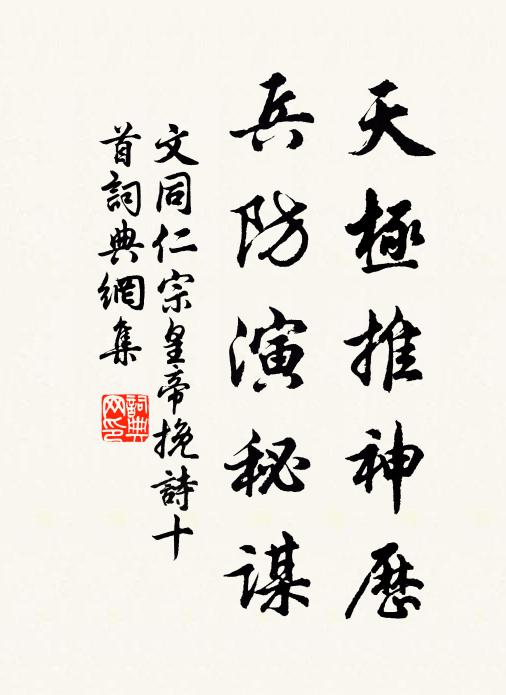 天極推神歷
兵防演秘謀
文同仁宗皇帝挽詩十
首詞典網集
詞典
网印